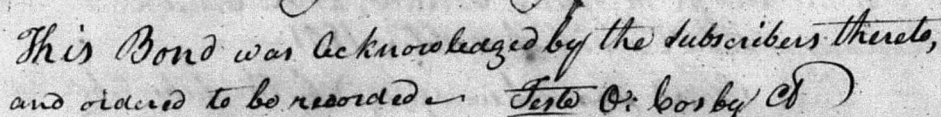 This Bond was acknowledged by the subscribers thereto,
and ordered to be recorded Teste O: Cosby